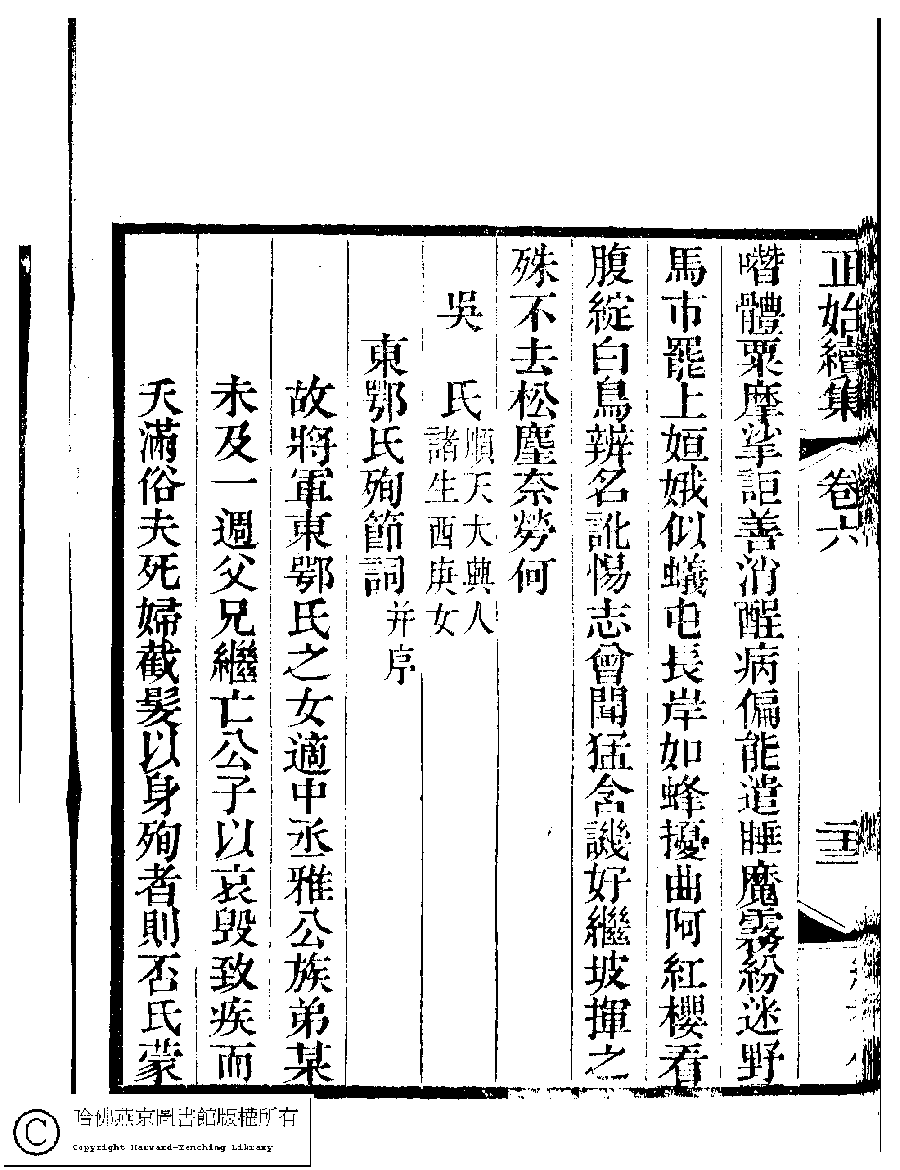 正始續集 卷六
噆體粟摩挲詎善消酲病偏能遣睡魔霧紛迷野
馬市罷上姮娥似蟻屯長岸如蜂擾曲阿紅櫻看
腹綻白鳥辨名訛惕志曾聞猛含譏好繼坡揮之
殊不去松麈奈勞何
吳 氏 順天大興人
諸生酉庚女
東鄂氏殉節詞 并序
故將軍東鄂氏之女適中丞雅公族弟某
未及一週父兄繼亡公子以哀毀致疾而
夭滿俗夫死婦截髮以身殉者則否氏蒙
哈佛燕京圖書館版權所有
Copyright Harvard-Yenching Library